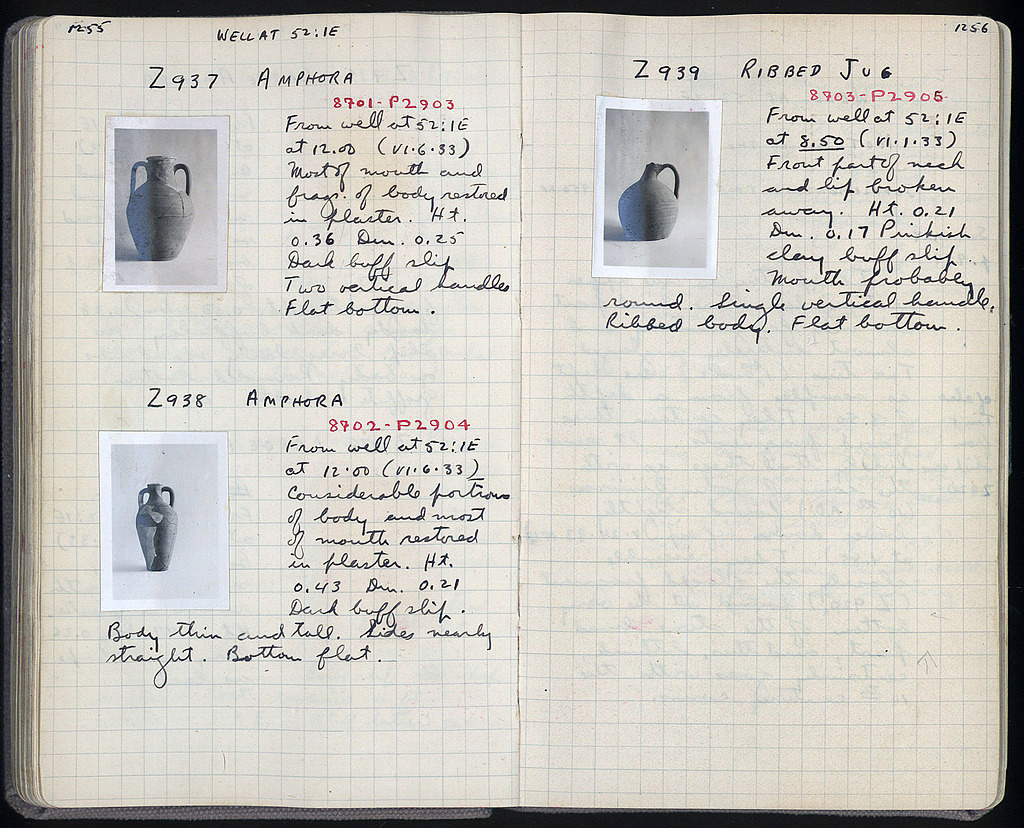 1255
WELL AT 52:1E
Z937 AMPHORA
8701-P2903
From well at 52:1E
at 12.00 (VI.6.33)
Most of mouth and
frags. of body restored
in plaster. Ht.
0.36 Dm. 0.25
Dark buff slip
Two vertical handles
Flat bottom.
Z938 AMPHORA
8702-P2904
From well at 52:1E
at 12.00 (VI.6.33)
Considerable portions
of body and most
of mouth restored
in plaster. Ht.
0.43 Dm. 0.21
Dark buff slip.
Body thin and tall. Sides nearly
straight. Bottom flat.
1256
Z939 RIBBED JUG
8703-P2905
From well at 52:1E
at 8.50 (VI.1.33)
Front part of neck
and lip broken
away. Ht. 0.21
Dm. 0.17 Pinkish
clay buff slip.
Mouth probably
round. Single vertical handle.
Ribbed body. Flat bottom.